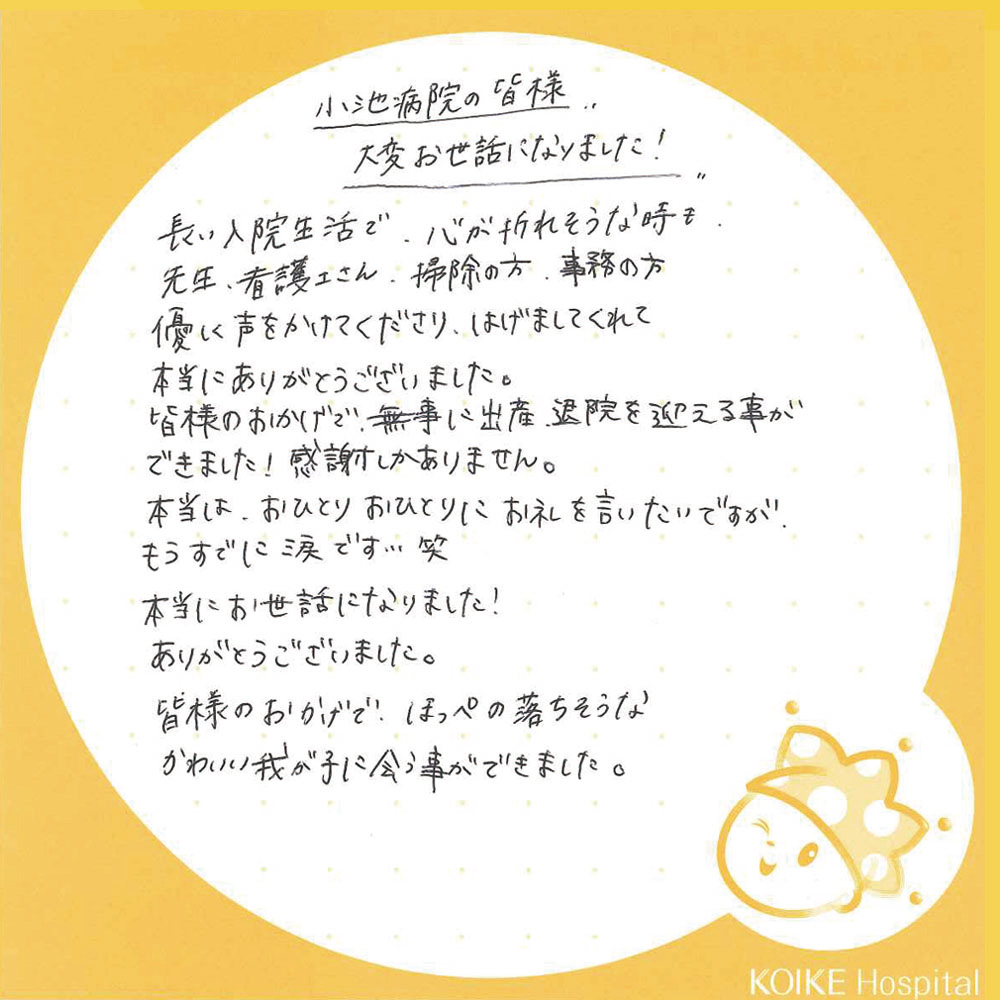 小池病院の皆様
大変お世話になりました!
長い入院生活で、心が折れそうな時も、
先生、看護士さん、掃除の方、事務の方
優しく声をかけてくださり、はげましてくれて
本当にありがとうございました。
皆様のおかげで、無事に出産、退院を迎える事が
できました!感謝しかありません。
本当は、おひとりおひとりにお礼を言いたいですが、
もうすでに涙です…笑
本当にお世話になりました!
ありがとうございました。
皆様のおかげで、ほっぺの落ちそうな
かわいい我が子に会う事ができました。
KOIKE Hospital